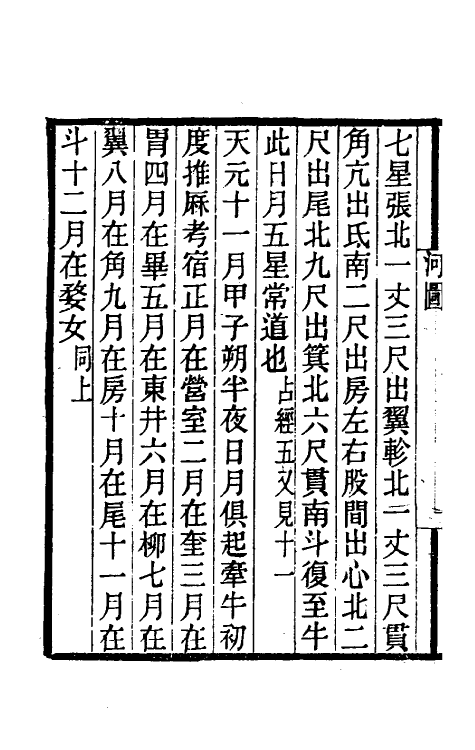 河圖
七星張北一丈三尺出翼軫北一丈三尺貫
角亢出氐南二尺出房左右股間出心北二
尺出尾北九尺出箕北六尺貫南斗復至牛
此日月五星常道也占經五又見十一
天元十一月甲子朔半夜日月俱起牽牛初
度推厤考宿正月在營室二月在奎三月在
胃四月在畢五月在東井六月在柳七月在
翼八月在角九月在房十月在尾十一月在
斗十二月在婺女同上